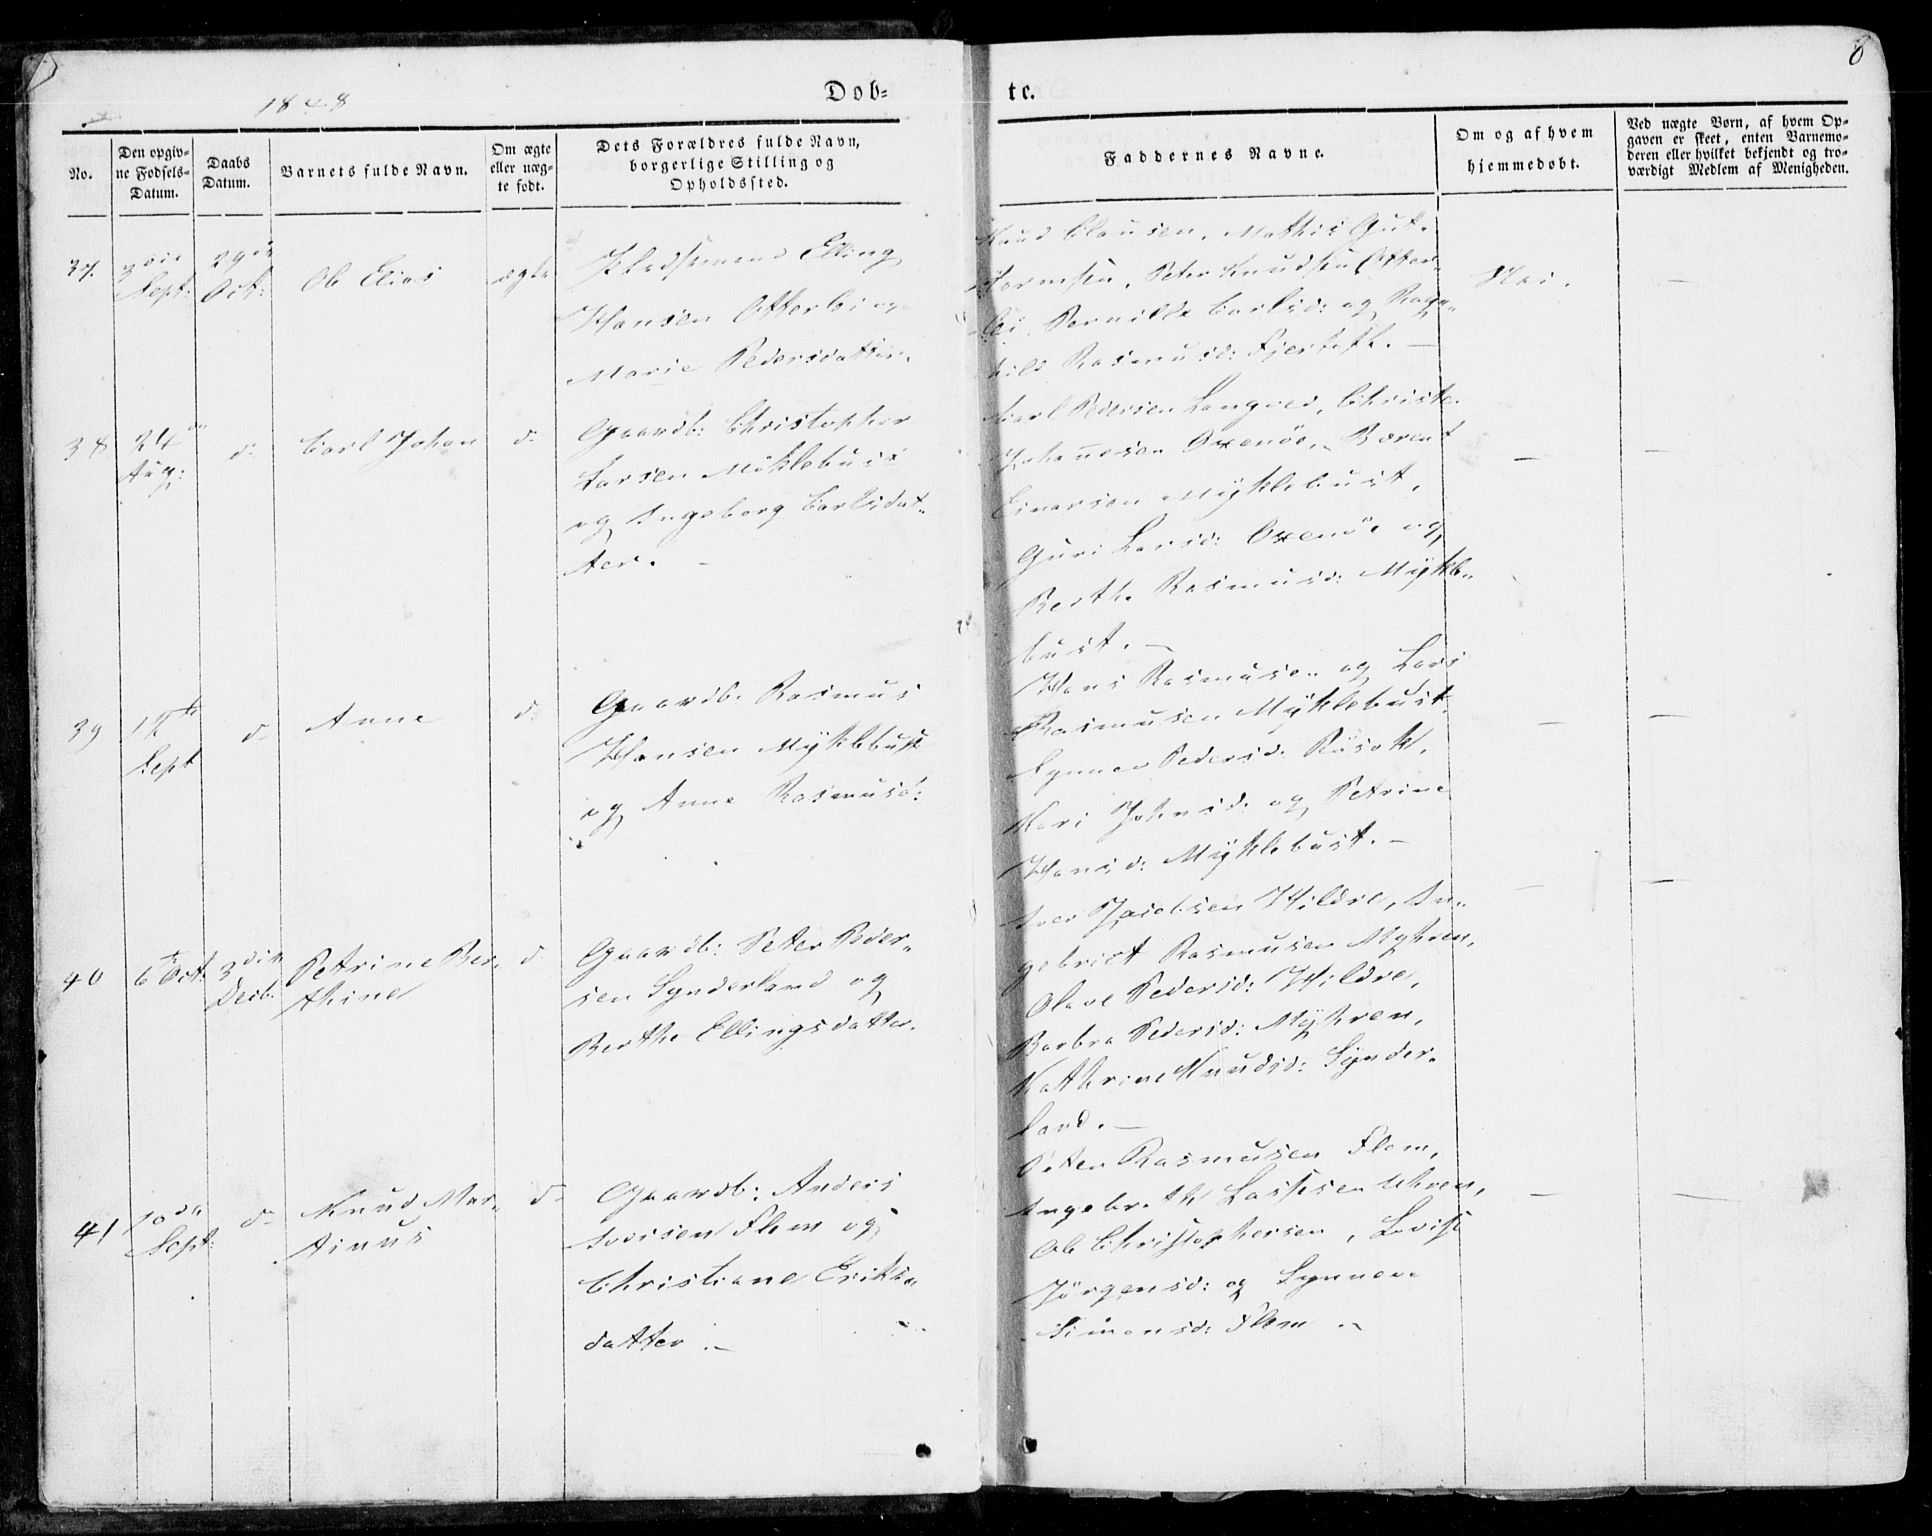 8
1848
Dob=
te.
No.
Den opgiv=
ne Fodsels=
Datum.
Daabs
Datum.
Barnets fulde Navn.
Om ægte
eller uæg=
te fodt.
Dets Forældres fulde Navn,
borgerlige Stilling og
Opholdssted.
Faddernes Navne.
Om og af hvem
hjemmedobt.
Ved uægte Born, af hvem Op=
gaven er skeet, enten Barnemo=
deren eller hvilket bekjendt og tro=
værdigt Medlem af Menigheden.
37.
3die
Sept:
29de
Oct:
Ole Elias
ægte
Pladsemand Elling
Hansen Otterlei og
Marie Pedersdatter.
Knud Clausen, Mathis Gut-
tormsen, Peter Knudsen Otter-
lei, Pernille Carlsd: og Ragn-
hild Rasmusd: Fjertoft. –
Nei.
–
38
24
Aug:
d:
Carl Johan
d:
Gaardb: Christopher
Larsen Myklebust
og Ingeborg Carlsdat-
ter. –
Carl Pedersen Longved, Christen
Johannesen Oxenöe, Berent
Einarsen Myklebust,
Guri Larsd: Oxenöe og
Berthe Rasmusd: Mykle-
bust. –
–
–
39
17de
Sept
d:
Anne
d:
Gaardb: Rasmus
Hansen Myklebust
og Anne Rasmusd:
Hans Rasmusen og Lars
Rasmusen Myklebust,
Synnev Pedersd: Rösok,
Kari Johnsd: og Petrine
Hansd: Myklebust. –
–
–
40
6te Oct:
3die
Decb.
Petrine Ber-
thine
d:
Gaardb: Peter Peder-
sen Synderland og
Berthe Ellingsdatter.
Iver Jacobsen Hildre, In-
gebrict Rasmusen Myhren,
Olave Pedersd: Hildre,
Barbra Pedersd: Myhren,
Kathrine Knudsd: Synder-
land. –
–
–
41
10de
Sept:
d:
Knud Mar-
tinus
d:
Gaardb: Anders
Iversen Flem og
Christiane Eriks-
datter. –
Peter Rasmusen Flem,
Ingebreth Lassesen Uhren,
Ole Christophersen, Lovise
Jörgensd: og Synneve
Simensd: Flem –
–
–